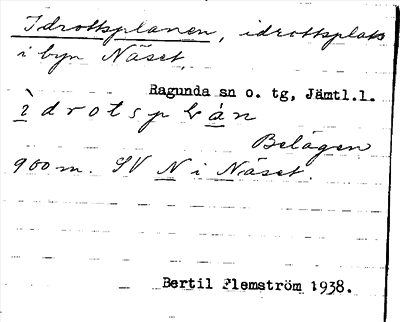 Idrottsplanen, idrottsplats
i byn Näset,
Ragunda sn o. tg, Jämtl.l.
ìdrotsplàn
Belägen
900 m. SV N i Näset.
Bertil Flemström 1938.